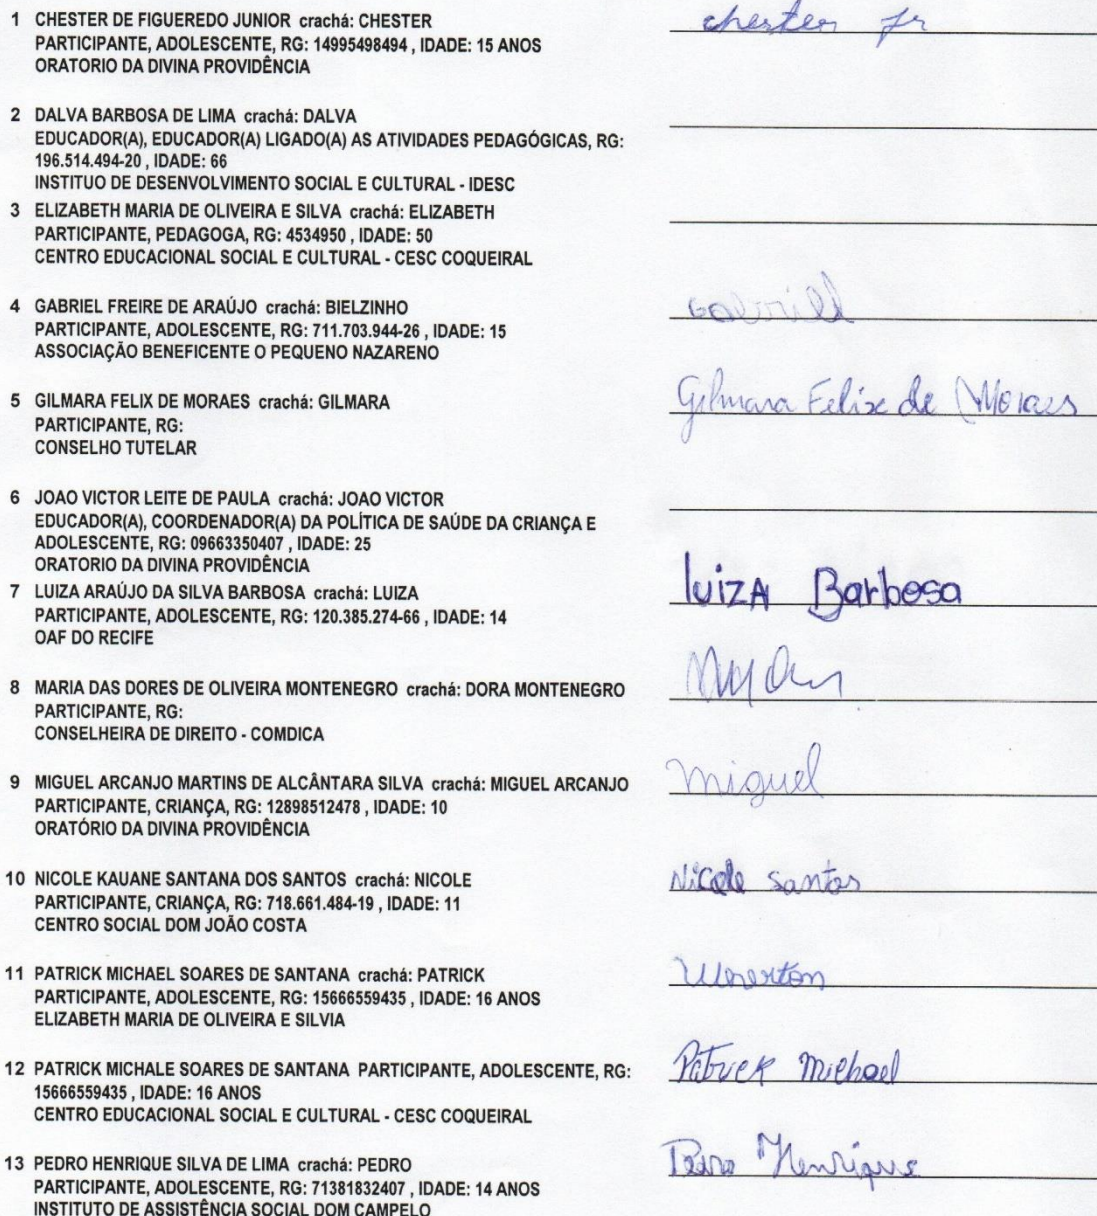 1 CHESTER DE FIGUEREDO JUNIOR crachá: CHESTER
chester jr
PARTICIPANTE, ADOLESCENTE, RG: 14995498494 , IDADE: 15 ANOS
ORATORIO DA DIVINA PROVIDÊNCIA
2 DALVA BARBOSA DE LIMA crachá: DALVA
EDUCADOR(A), EDUCADOR(A) LIGADO(A) AS ATIVIDADES PEDAGÓGICAS, RG:
196.514.494-20 , IDADE: 66
INSTITUO DE DESENVOLVIMENTO SOCIAL E CULTURAL - IDESC
3 ELIZABETH MARIA DE OLIVEIRA E SILVA crachá: ELIZABETH
PARTICIPANTE, PEDAGOGA, RG: 4534950 , IDADE: 50
CENTRO EDUCACIONAL SOCIAL E CULTURAL - CESC COQUEIRAL
4 GABRIEL FREIRE DE ARAÚJO crachá: BIELZINHO
PARTICIPANTE, ADOLESCENTE, RG: 711.703.944-26 , IDADE: 15
ASSOCIAÇÃO BENEFICENTE O PEQUENO NAZARENO
5 GILMARA FELIX DE MORAES crachá: GILMARA
Gilmara Felix de Moraes
PARTICIPANTE, RG:
CONSELHO TUTELAR
6 JOAO VICTOR LEITE DE PAULA crachá: JOAO VICTOR
EDUCADOR(A), COORDENADOR(A) DA POLÍTICA DE SAÚDE DA CRIANÇA E
ADOLESCENTE, RG: 09663350407 , IDADE: 25
ORATORIO DA DIVINA PROVIDÊNCIA
7 LUIZA ARAÚJO DA SILVA BARBOSA crachá: LUIZA
luizA Barbosa
PARTICIPANTE, ADOLESCENTE, RG: 120.385.274-66 , IDADE: 14
OAF DO RECIFE
8 MARIA DAS DORES DE OLIVEIRA MONTENEGRO crachá: DORA MONTENEGRO
PARTICIPANTE, RG:
CONSELHEIRA DE DIREITO - COMDICA
9 MIGUEL ARCANJO MARTINS DE ALCÂNTARA SILVA crachá: MIGUEL ARCANJO
miguel
PARTICIPANTE, CRIANÇA, RG: 12898512478 , IDADE: 10
ORATÓRIO DA DIVINA PROVIDÊNCIA
10 NICOLE KAUANE SANTANA DOS SANTOS crachá: NICOLE
Nicole santos
PARTICIPANTE, CRIANÇA, RG: 718.661.484-19 , IDADE: 11
CENTRO SOCIAL DOM JOÃO COSTA
11 PATRICK MICHAEL SOARES DE SANTANA crachá: PATRICK
PARTICIPANTE, ADOLESCENTE, RG: 15666559435 , IDADE: 16 ANOS
ELIZABETH MARIA DE OLIVEIRA E SILVIA
12 PATRICK MICHALE SOARES DE SANTANA PARTICIPANTE, ADOLESCENTE, RG:
Patrick Michael
15666559435 , IDADE: 16 ANOS
CENTRO EDUCACIONAL SOCIAL E CULTURAL - CESC COQUEIRAL
13 PEDRO HENRIQUE SILVA DE LIMA crachá: PEDRO
Pedro Henrique
PARTICIPANTE, ADOLESCENTE, RG: 71381832407 , IDADE: 14 ANOS
INSTITUTO DE ASSISTÊNCIA SOCIAL DOM CAMPELO